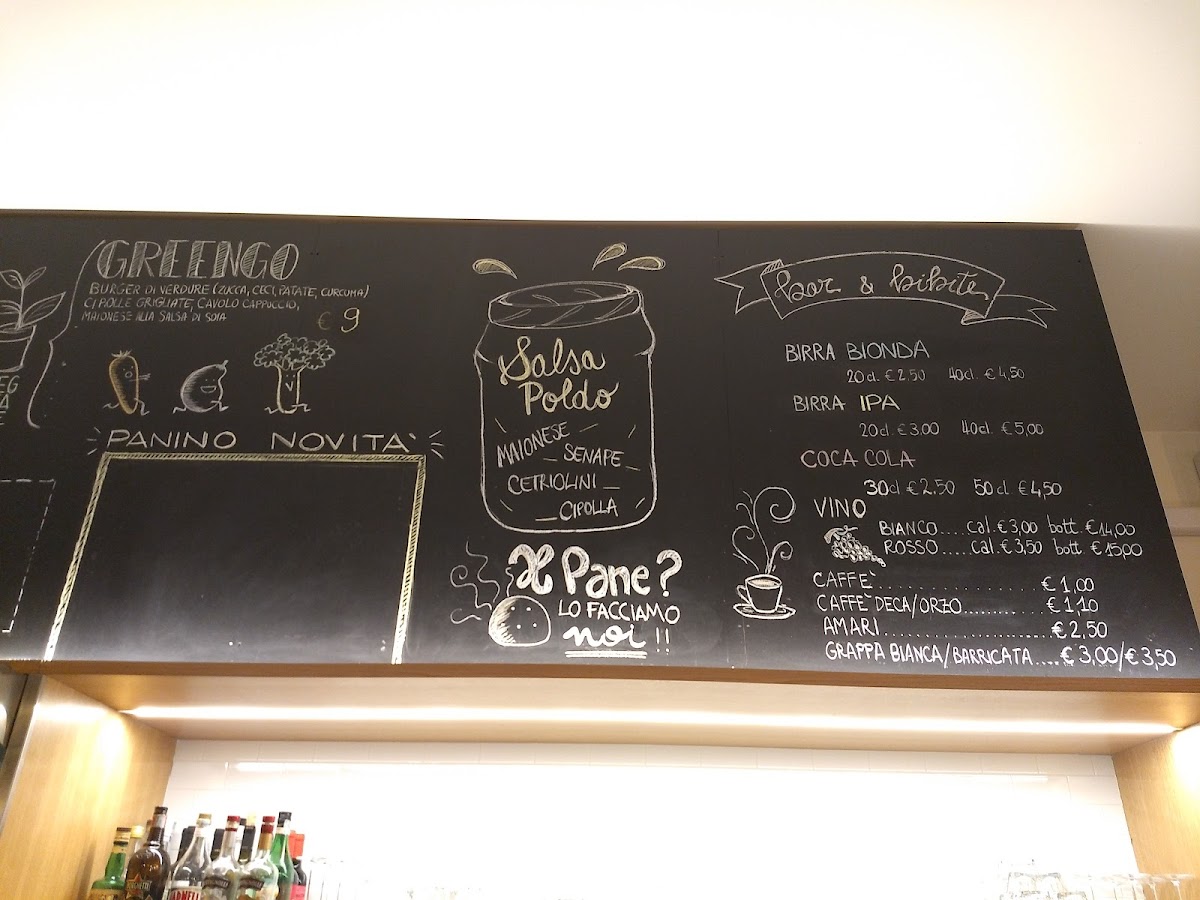 GREENGO
BURGER DI VERDURE (ZUCCA, CECI, PATATE, CURCUMA)
CIPOLLE GRIGLIATE, CAVOLO CAPPUCCIO,
MAIONESE ALLA SALSA DI SOIA
€ 9
V
PANINO NOVITA'
Salsa
Poldo
MAIONESE
SENAPE
CETRIOLINI
CIPOLLA
Il Pane?
LO FACCIAMO
noi!!
bar & bibite
BIRRA BIONDA
20cl. €2.50 40cl. €4,50
BIRRA IPA
20cl. €3,00 40cl. €5,00
COCA COLA
30cl €2.50 50cl. €4,50
VINO
BIANCO.... cal. €3,00 bott. €14,00
ROSSO..... cal. €3,50 bott. €15,00
CAFFÈ.................. €1,00
CAFFÈ DECA/ORZO......... €1,10
AMARI..................... €2,50
GRAPPA BIANCA/BARRICATA....€3,00/€3,50